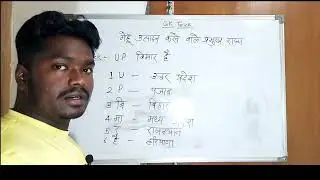 GK Trick
गेहू उत्पादन करने वाले प्रमुख राज्य
UP बिमार है
1 U — उत्तर प्रदेश
2 P — पंजाब
3 बि — बिहार
4 मा — मध्य
5 र — राजस्थान
6 है — हरियाणा